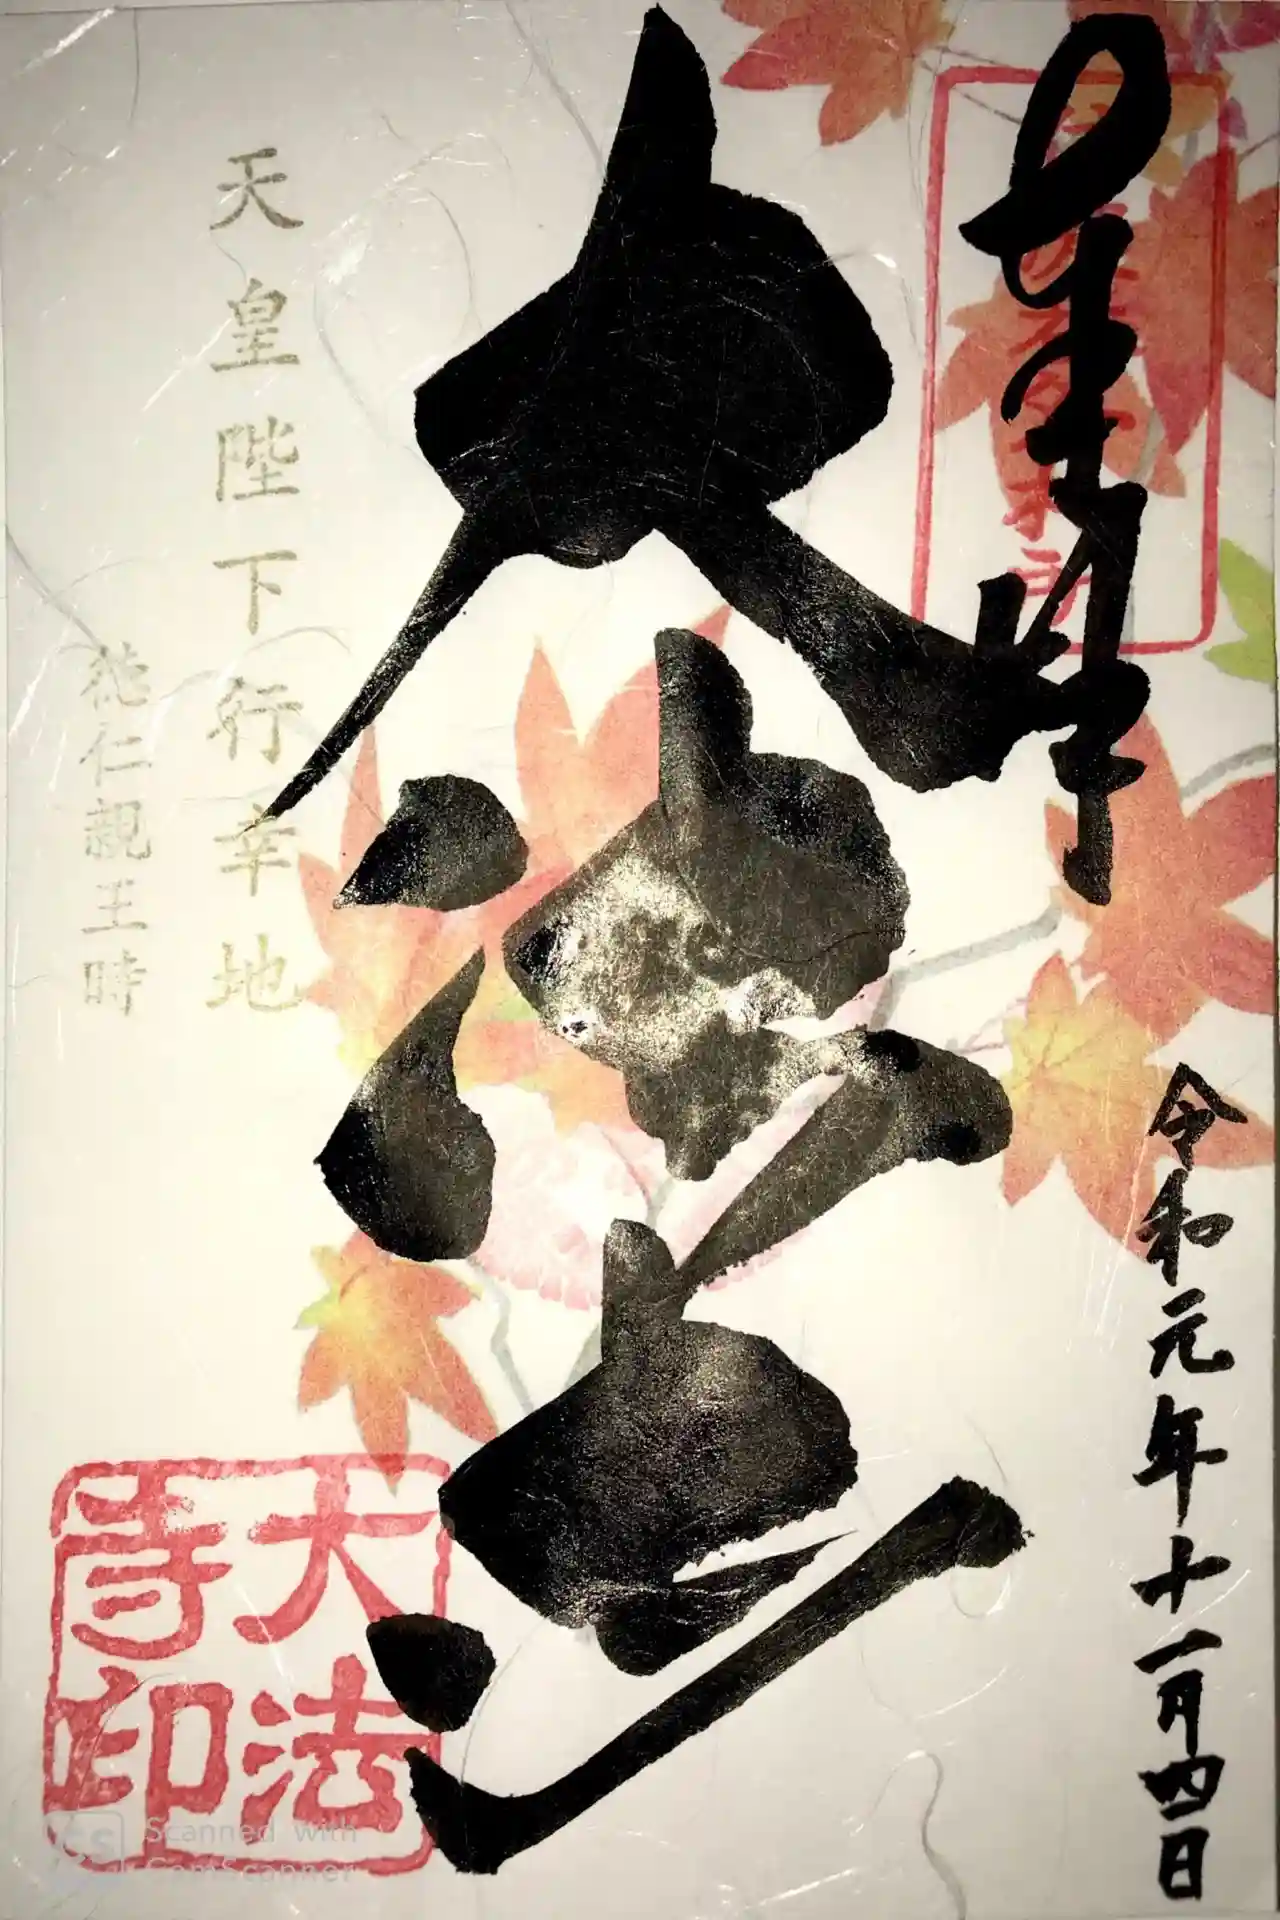 奉拝
令和元年十一月四日
大法寺
天皇陛下行幸地
徳仁親王時
大法
寺印
CS
Scanned with
CamScanner